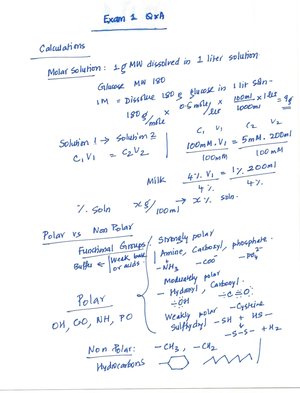 Exam 1 Q&A
Calculations
Molar Solution: 1 g MW dissolved in 1 liter solution.
Glucose MW 180
1M = Dissolve 180 g glucose in 1 lit soln.
180 g/mole × 0.5 mole/lit × 100ml/1000ml × 1 lit = 9g
Solution 1 → Solution 2
C1V1 = C2V2
C1 V1 C2 V2
100mM. V1 = 5mM. 200ml
100mM 100mM
Milk 4%. V1 = 1%. 200ml
4% 4%.
% Soln x g/100ml → x% soln.
Polar vs Non Polar
Functional Groups:
Buffers ← Weak base or acids
Strongly polar
Amine, Carboxyl, phosphate.
-NH3+ -COO- -PO4 2-
Moderately polar
- Hydroxyl, Carbonyl.
-OH -C=O
Weakly polar -Cysteine
Sulfhydryl -SH + HS-
↓
-S-S- + H2
Polar
OH, CO, NH, PO
Non Polar: -CH3, -CH2
Hydrocarbons